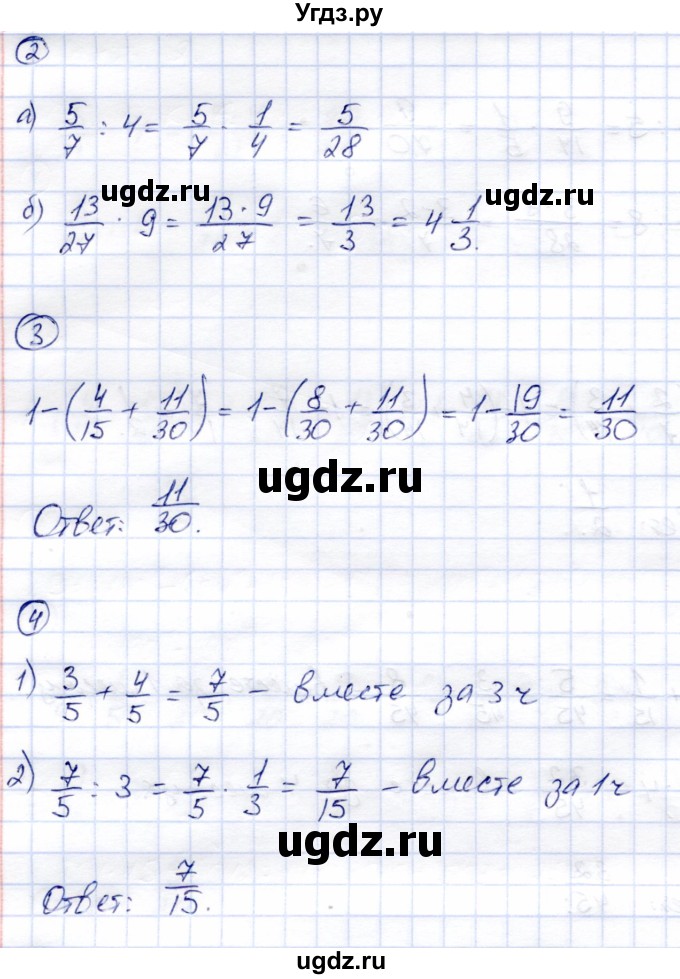 Угдз.ру
2
а) 5/7 : 4 = 5/7 · 1/4 = 5/28
ugdz.ru ugdz.ru
б) 13/27 · 9 = 13·9/27 = 13/3 = 4 1/3.
3
1-(4/15 + 11/30) = 1-(8/30 + 11/30) = 1- 19/30 = 11/30
ugdz.ru
Ответ: 11/30.
4
1) 3/5 + 4/5 = 7/5 - вместе за 3 ч
2) 7/5 : 3 = 7/5 · 1/3 = 7/15 - вместе за 1ч
ugdz.ru
Ответ: 7/15.
ugdz.ru